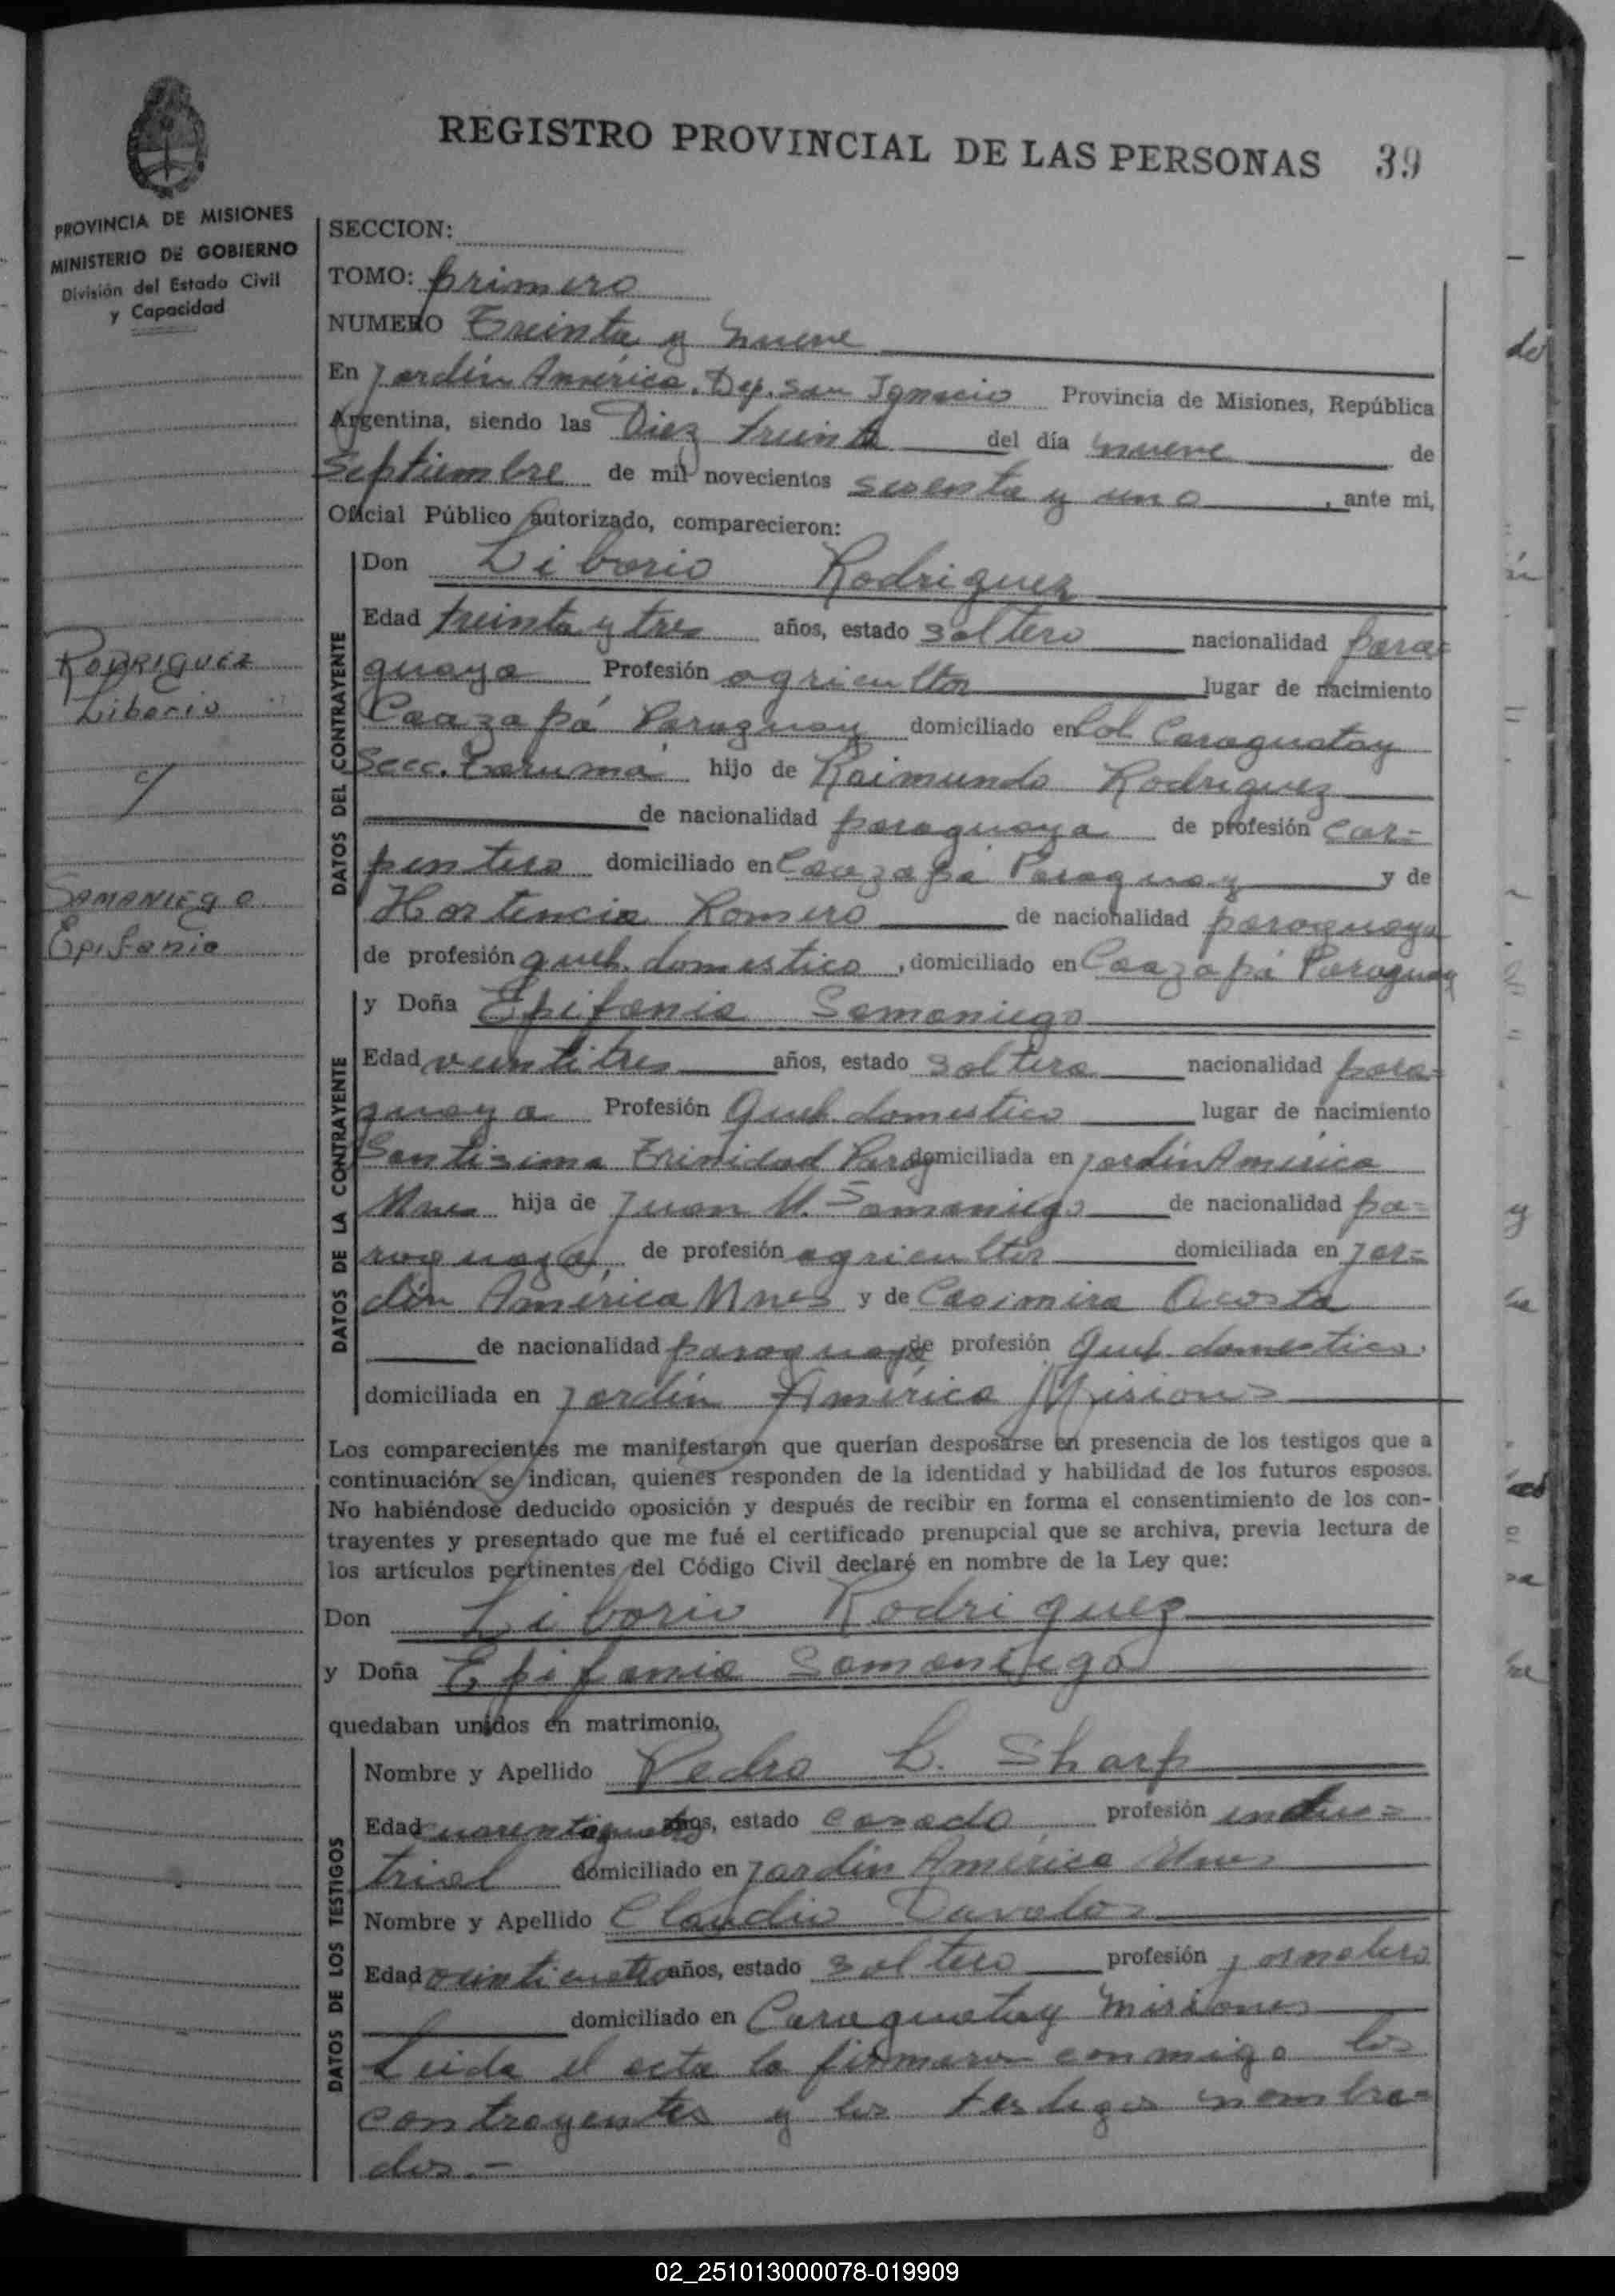 REGISTRO PROVINCIAL DE LAS PERSONAS 39
PROVINCIA DE MISIONES
MINISTERIO DE GOBIERNO
División del Estado Civil
y Capacidad
SECCION:
TOMO: primero
NUMERO Treinta y nueve
En Jardín América. Dep. San Ignacio Provincia de Misiones, República
Argentina, siendo las Diez treinta del día nueve de
Septiembre de mil novecientos sesenta y uno, ante mi,
Oficial Público autorizado, comparecieron:
RODRIGUEZ
Liborio
c/
SAMANIEGO
Epifania
DATOS DEL CONTRAYENTE
Don Liborio Rodriguez
Edad treinta y tres años, estado soltero nacionalidad para=
guaya Profesión agricultor lugar de nacimiento
Caazapá Paraguay domiciliado en Col Caraguatay
Secc. Tarumá hijo de Raimundo Rodriguez
de nacionalidad paraguaya de profesión car=
pintero domiciliado en Caazapá Paraguay y de
Hortencia Romero de nacionalidad paraguaya
de profesión queh. domestico, domiciliado en Caazapá Paraguay
DATOS DE LA CONTRAYENTE
y Doña Epifania Samaniego
Edad veintitres años, estado soltera nacionalidad para=
guaya Profesión Queh. domestico lugar de nacimiento
Santisima Trinidad Parag domiciliada en Jardín América
Mnes hija de Juan M. Samaniego de nacionalidad pa=
raguaya, de profesión agricultor domiciliada en Jar=
dín América Mnes y de Casimira Acosta
de nacionalidad paraguaya de profesión Queh. domestico.
domiciliada en Jardín América Misiones
Los comparecientes me manifestaron que querían desposarse en presencia de los testigos que a
continuación se indican, quienes responden de la identidad y habilidad de los futuros esposos.
No habiéndose deducido oposición y después de recibir en forma el consentimiento de los con-
trayentes y presentado que me fué el certificado prenupcial que se archiva, previa lectura de
los artículos pertinentes del Código Civil declaré en nombre de la Ley que:
Don Liborio Rodriguez
y Doña Epifania Samaniego
quedaban unidos en matrimonio,
DATOS DE LOS TESTIGOS
Nombre y Apellido Pedro L. Sharp
Edad cuarentaicuatro años, estado casado profesión indus=
trial domiciliado en Jardín América Mnes
Nombre y Apellido Claudio Davalos
Edad veinticuatro años, estado soltero profesión jornalero
domiciliado en Caraguatay Misiones
Leida el acta la firmaron conmigo los
contrayentes y los testigos nombra=
dos.-
02_251013000078-019909